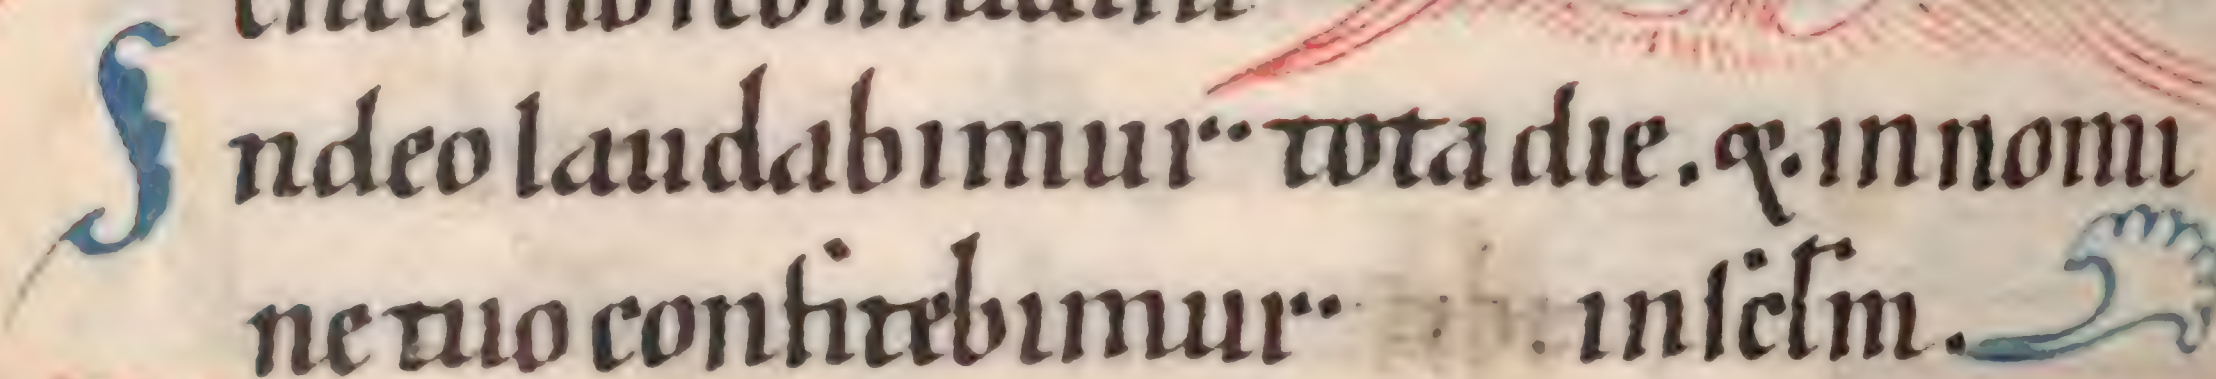 In deo laudabimur tota die. q. in nomi
ne tuo confitebimur in sclm.